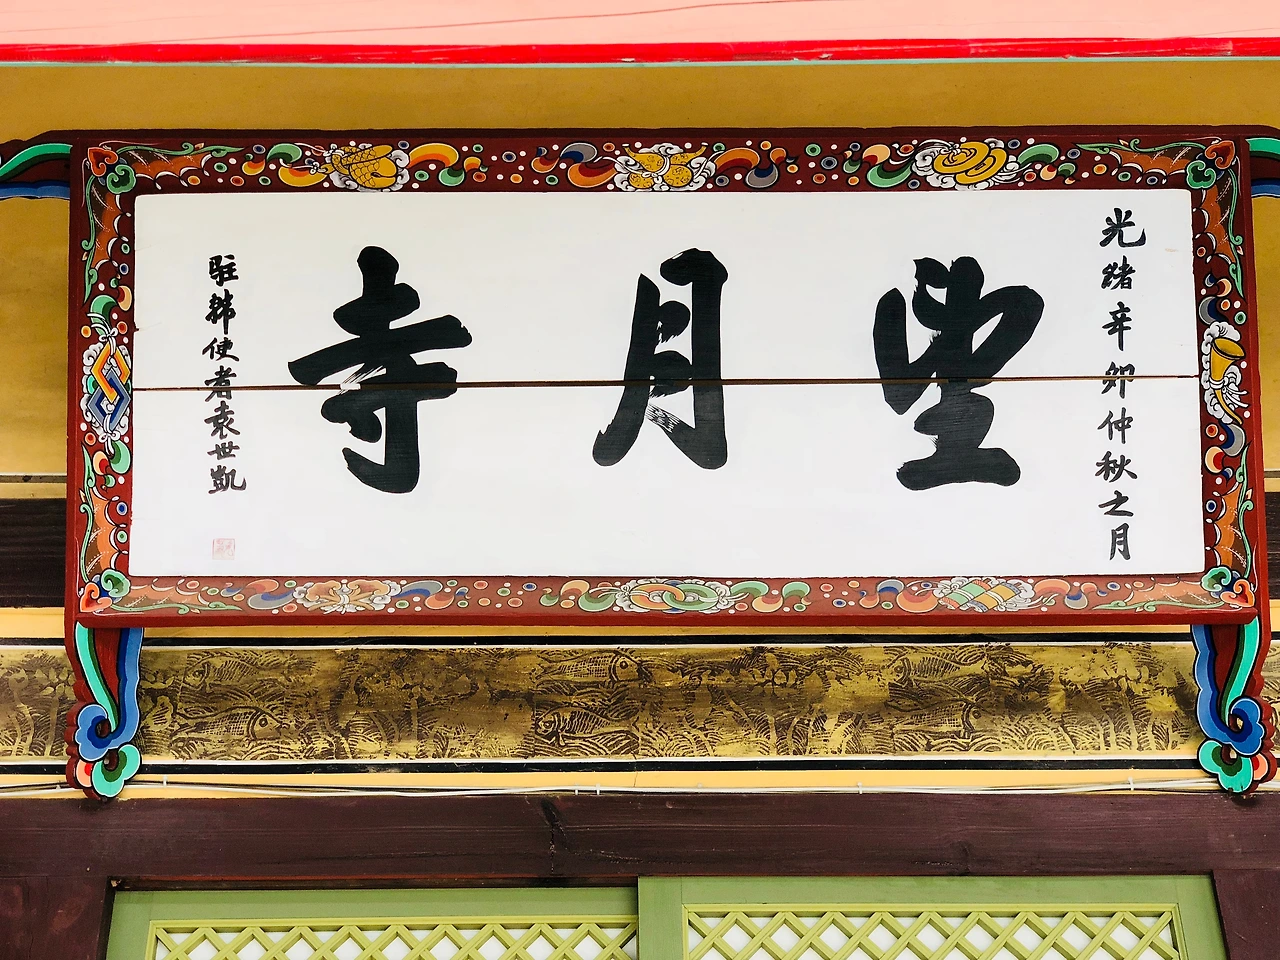 光緒辛卯仲秋之月
望月寺
駐韓使者袁世凱